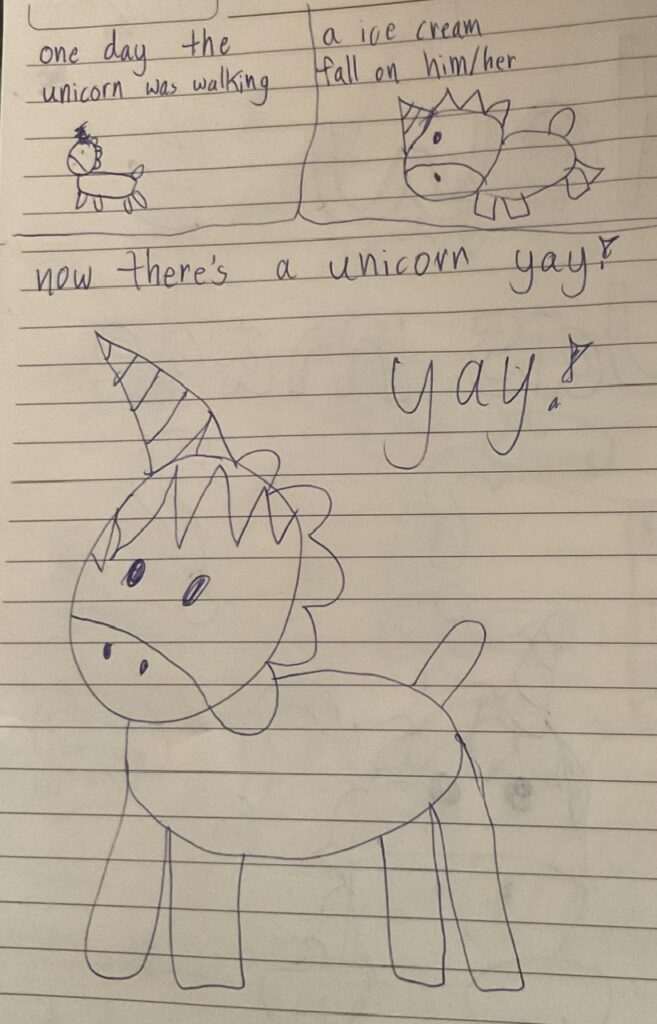 one day the
unicorn was walking
a ice cream
fall on him/her
now there's a unicorn yay!
yay!